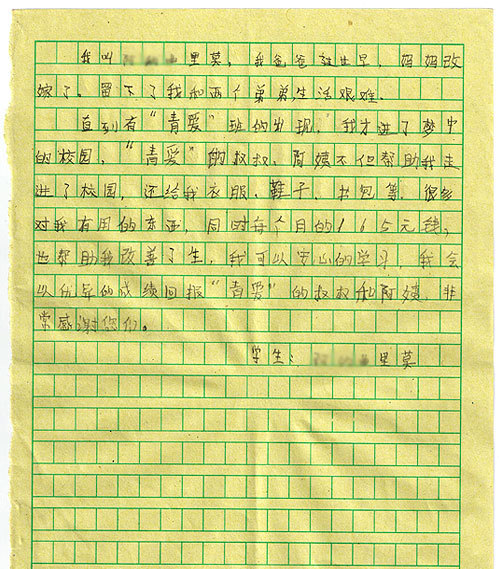 我叫里莫，我爸爸去世早，妈妈改
嫁了。留下了我和两个弟弟生活艰难。
直到有“青爱”班的出现，我才进了梦中
的校园，“青爱”的叔叔、阿姨不但帮助我走
进了校园，还给我衣服、鞋子、书包等，很多
对我有用的东西，同时每个月的165元钱，
也帮助我改善了生，我可以安心的学习，我会
以优异的成绩回报“青爱”的叔叔和阿姨，非
常感谢您们。
学生：里莫